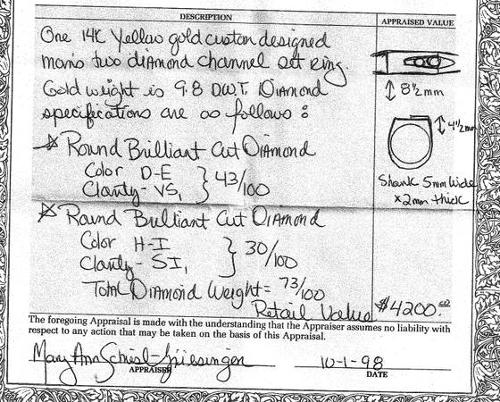 DESCRIPTION
APPRAISED VALUE
One 14K Yellow gold custom designed
mans two diamond channel set ring.
Gold weight is 9.8 DWT. Diamond
specifications are as follows:
Round Brilliant Cut Diamond
Color D-E
Clarity- VS1
} 43/100
Round Brilliant Cut Diamond
Color H-I
Clarity- SI1
} 30/100
Total Diamond Weight = 73/100
Retail Value $4200.00
↕ 8½mm
↕ 4½mm
Shank 5mm wide
x 2mm thick
The foregoing Appraisal is made with the understanding that the Appraiser assumes no liability with
respect to any action that may be taken on the basis of this Appraisal.
Mary Ann
10-1-98
APPRAISER
DATE